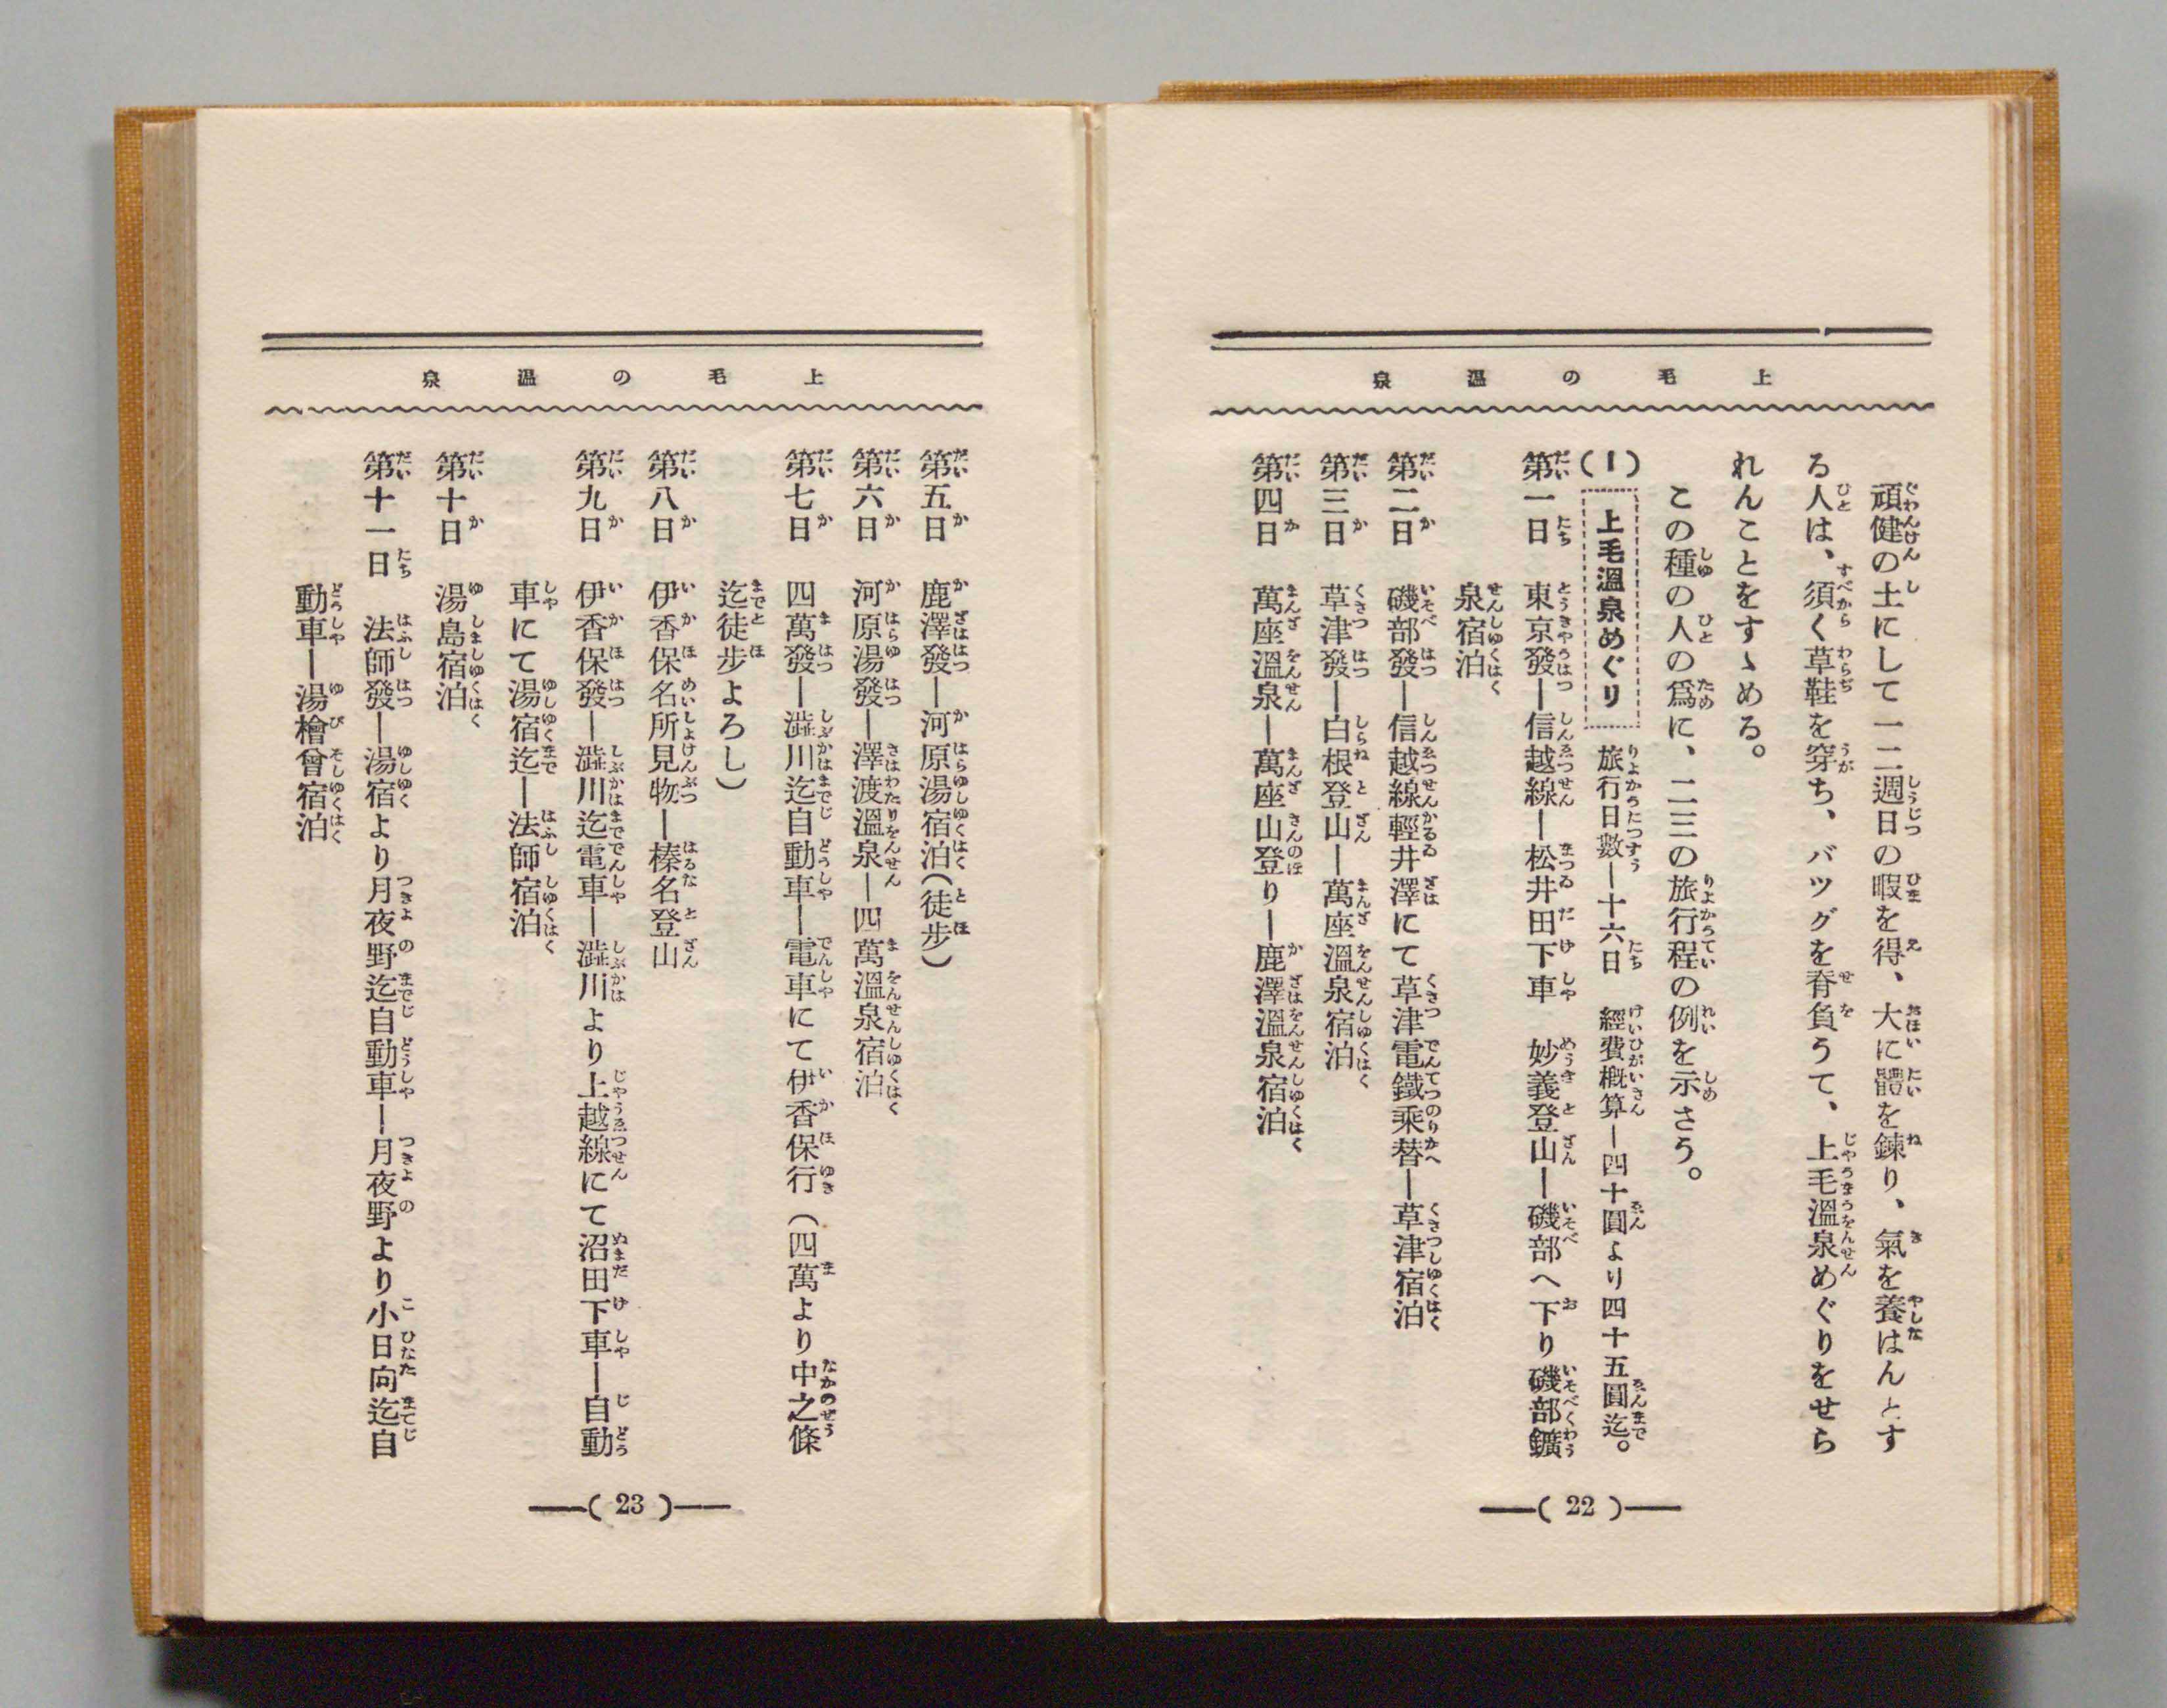 上毛の溫泉
頑健の士にして一二週日の暇を得、大に體を鍊り、氣を養はんとす
る人は、須く草鞋を穿ち、バツグを脊負うて、上毛溫泉めぐりをせら
れんことをすゝめる。
この種の人の爲に、二三の旅行程の例を示さう。
(1) 上毛溫泉めぐり 旅行日數―十六日 經費槪算―四十圓より四十五圓迄。
第一日 東京發―信越線―松井田下車 妙義登山―磯部へ下り磯部鑛
泉宿泊
第二日 磯部發―信越線輕井澤にて草津電鐵乘替―草津宿泊
第三日 草津發―白根登山―萬座溫泉宿泊
第四日 萬座溫泉―萬座山登り―鹿澤溫泉宿泊
―( 22 )―
上毛の溫泉
第五日 鹿澤發―河原湯宿泊(徒步)
第六日 河原湯發―澤渡溫泉―四萬溫泉宿泊
第七日 四萬發―澁川迄自動車―電車にて伊香保行(四萬より中之條
迄徒步よろし)
第八日 伊香保名所見物―榛名登山
第九日 伊香保發―澁川迄電車―澁川より上越線にて沼田下車―自動
車にて湯宿迄―法師宿泊
第十日 湯島宿泊
第十一日 法師發―湯宿より月夜野迄自動車―月夜野より小日向迄自
動車―湯檜曾宿泊
―( 23 )―